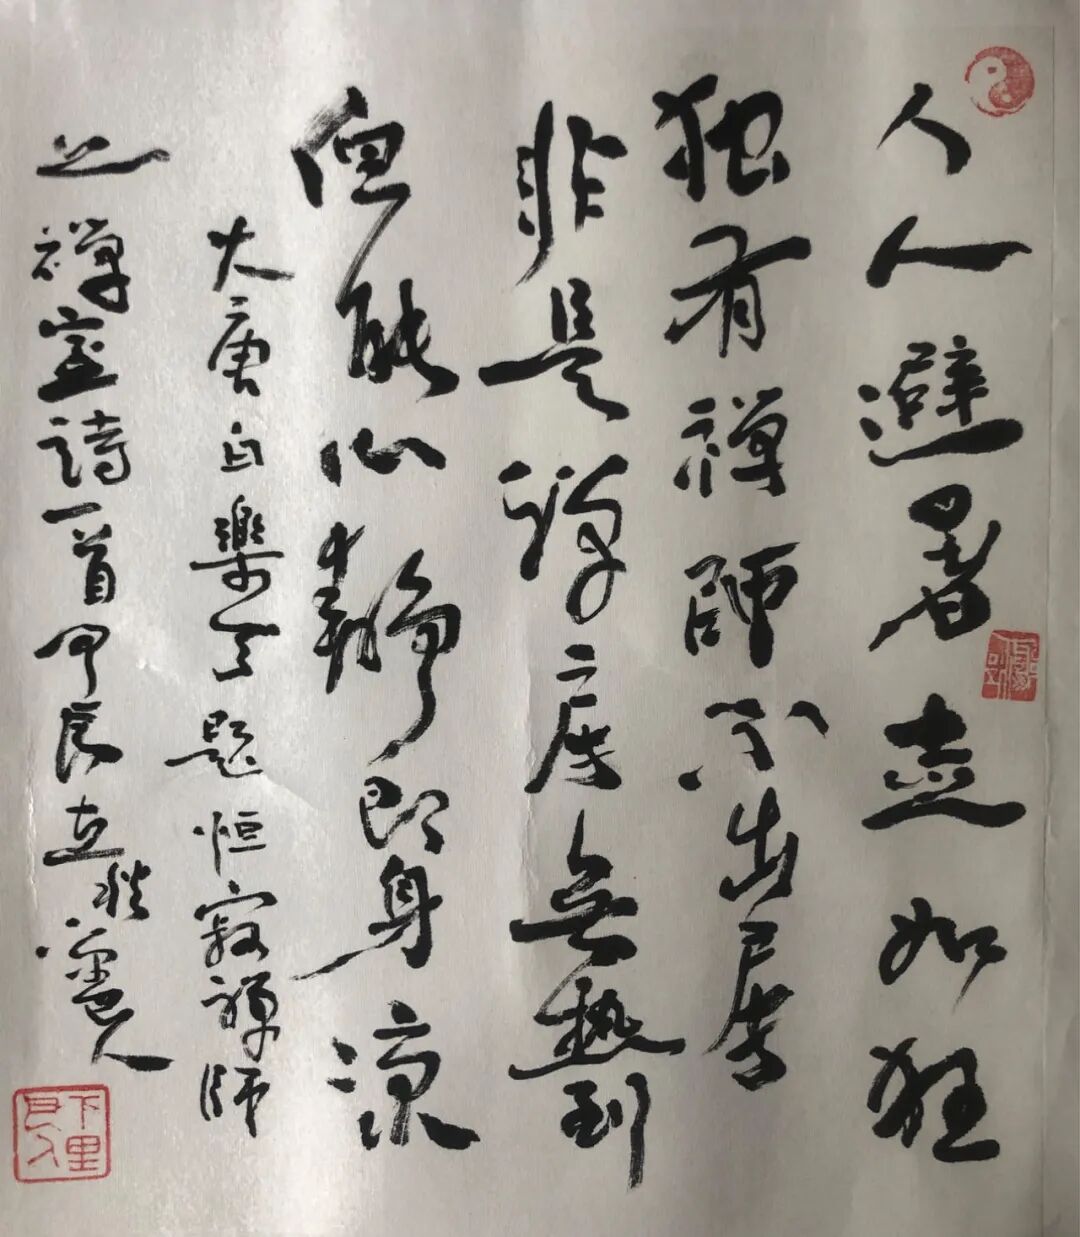 人人避暑走如狂
独有禅師不出房
非是禅房無熱到
但能心静即身凉
大唐白樂天題恒寂禅師
之禅室詩一首甲辰立秋人
下里巴人